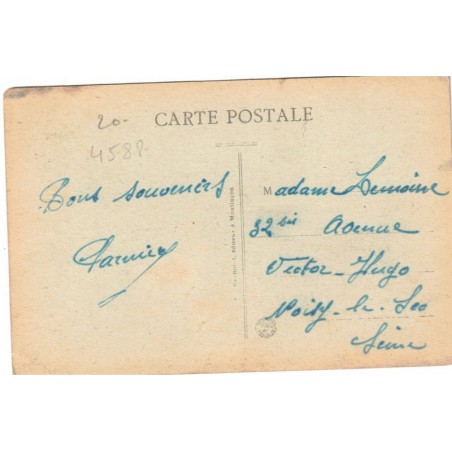 CARTE POSTALE
20-
458P.
Bons souvenirs
Madame Lemoine
32 bis Avenue
Victor-Hugo
Noisy-le-Sec
Seine